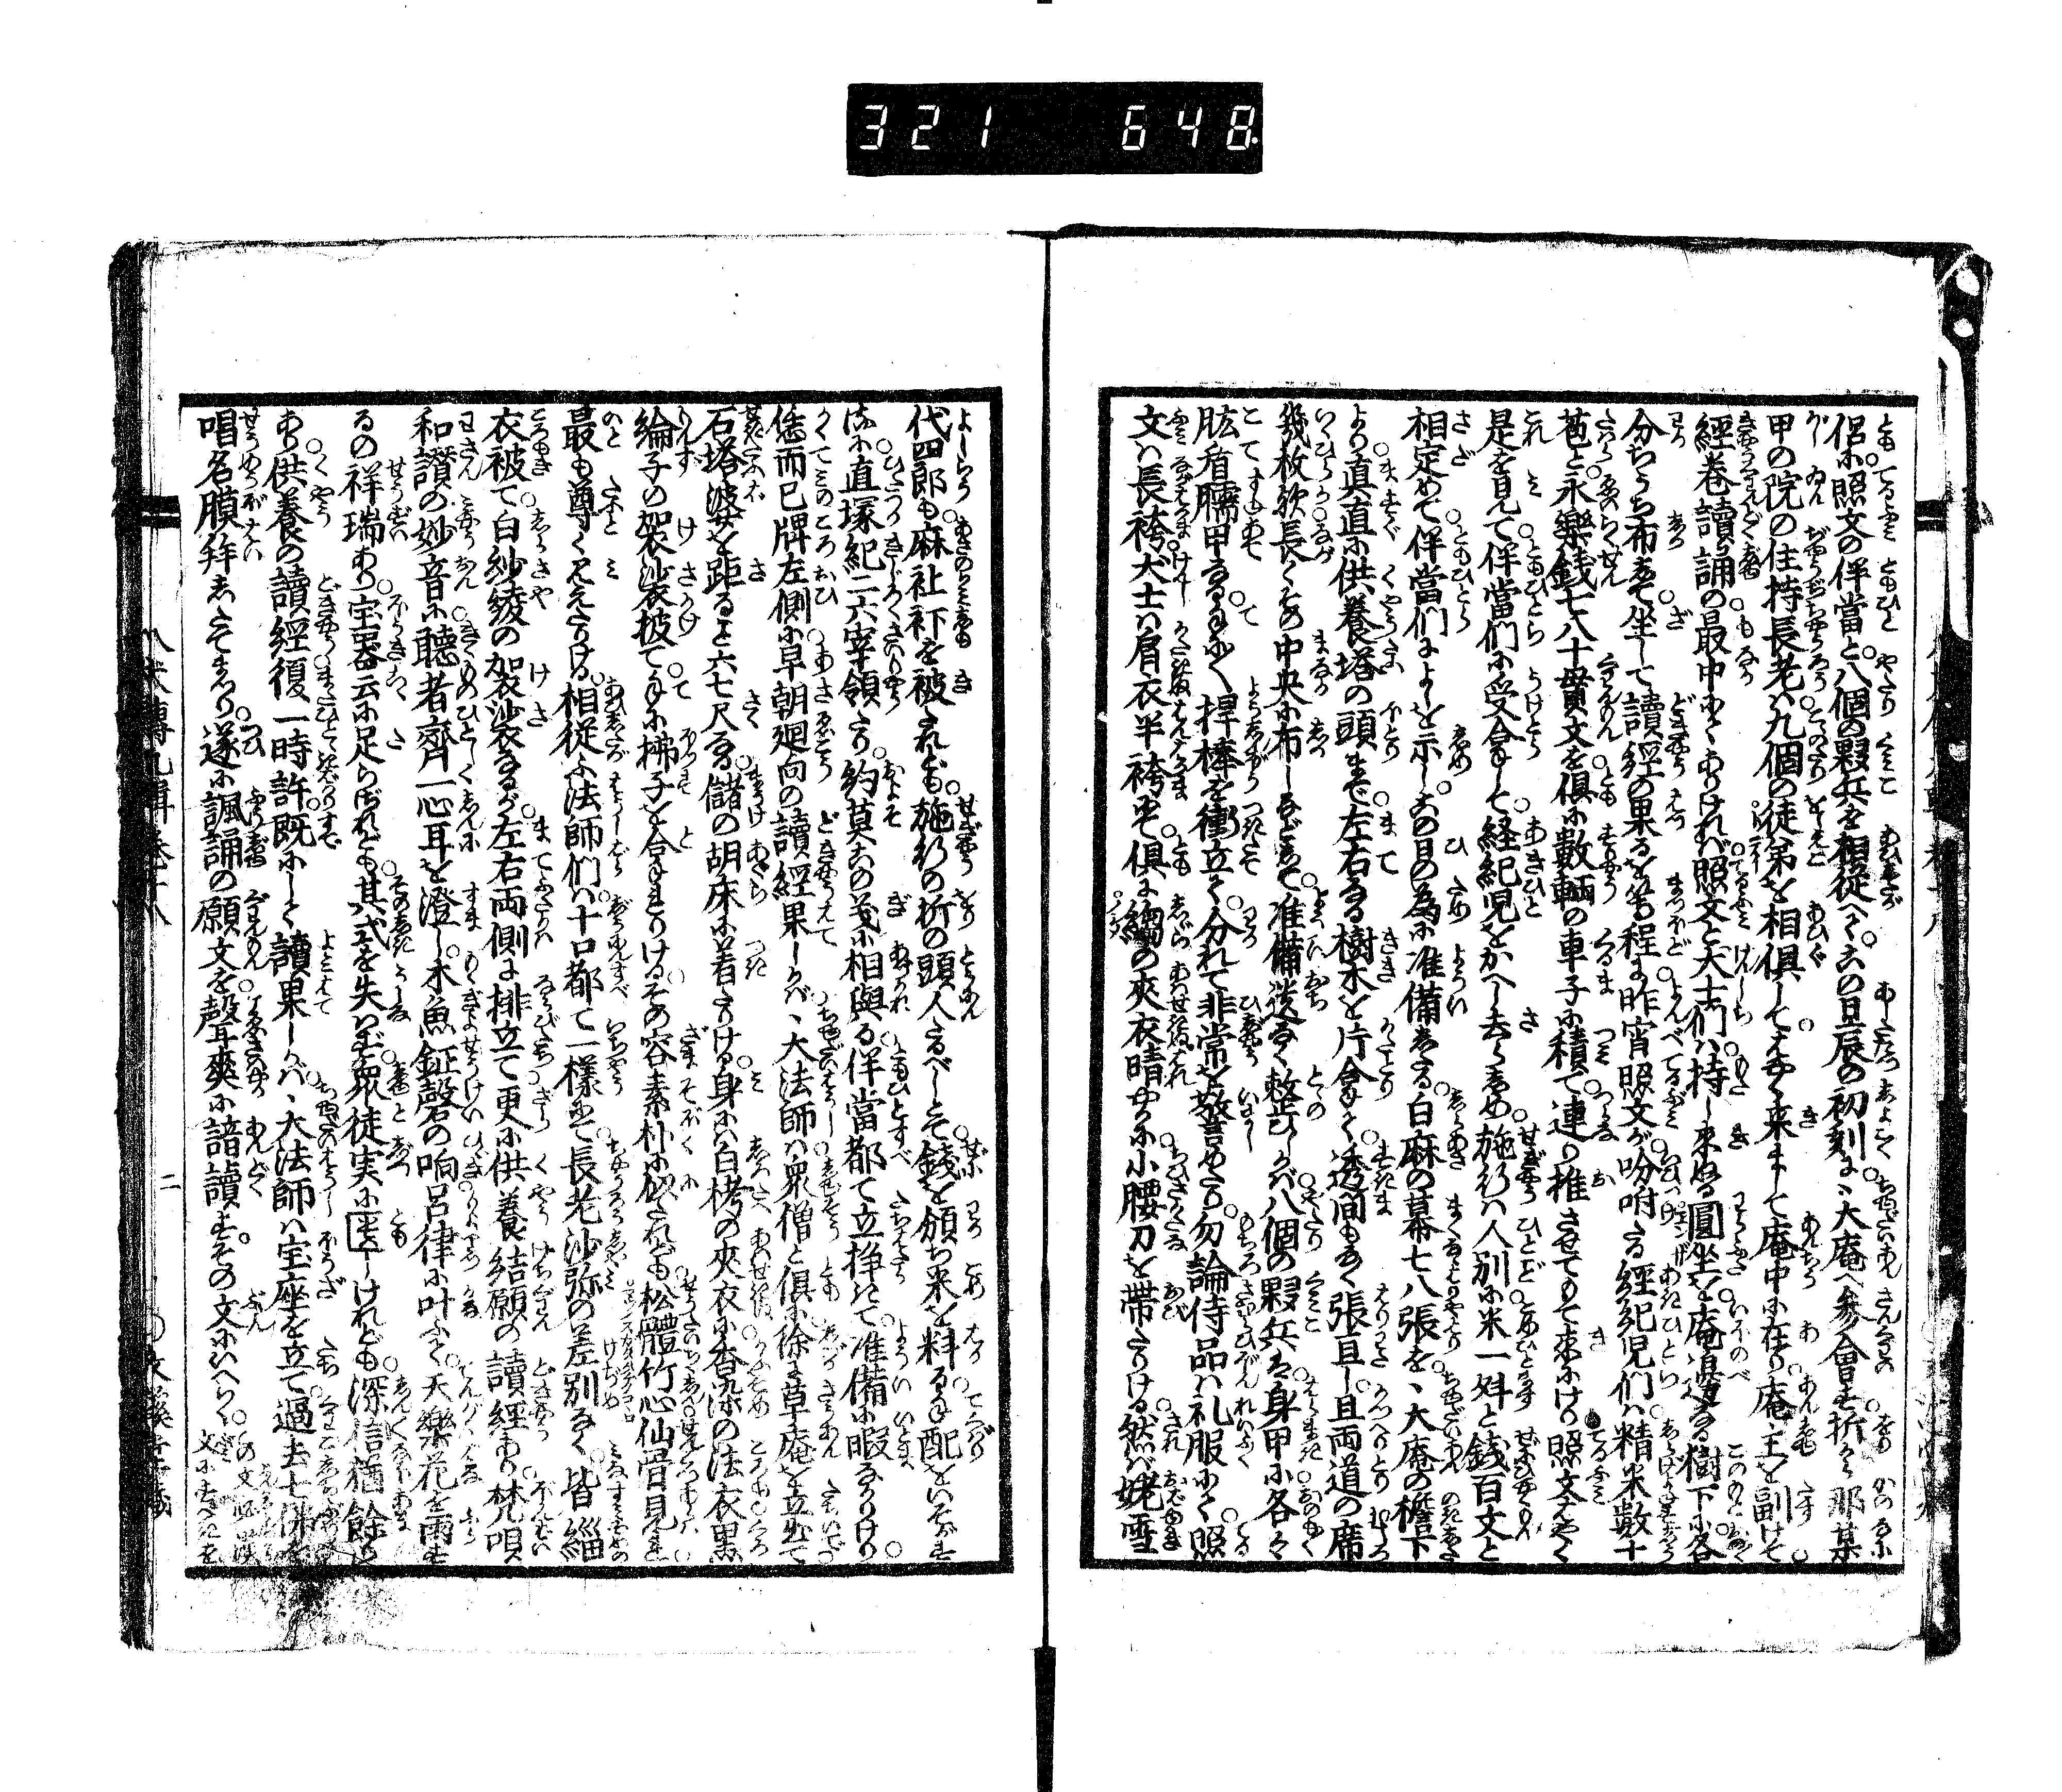 321 648
侶に照文の伴當と八個の夥兵を相從へて。この旦辰の初刻に、大庵へ參會す。折から那某
甲の院の住持長老。九個の徒弟を相倶して。はやく來まして庵中に在り。庵主を副けて
經卷讀誦の最中にてありければ。照文と大士們は。持し來ぬる圓坐を。庵邊なる樹下に。各
分ちうち布せ。坐して讀經の果るを等程に。昨宵照文が吩咐たる。經紀兒們は。精米數十
苞と。永樂錢七八十貫文を。倶に數輌の車子に積て。連り推させてもて來にけり。照文はやく
是を見て。伴當們に受拿して。經紀兒をかへし去らしめ。施行は人別に。米一舛と錢百文と
相定めて。伴當們によしを示し。この日の為に准備したる。白麻の幕七八張を。大庵の檐下
より。真直に供養塔の頭まで。左右なる樹木を片拿て。透間もなく張亘し。且両道の席
幾枚歟。長くその中央に布しなどして。准備遺なく整ひしかば。八個の夥兵は。身甲に各々
肱盾臑甲なる。手に捍棒を衝立て。分れて非常を警めたり。勿論侍品は礼服にて。照
文は長袴。大士は肩衣半袴にて。倶に縐の夾衣晴やかに。小腰刀を帶たりける。然ば姥雪
代四郎も。麻社裃を被たれども。施行の折の頭人たるべしとて。錢を頒ち米を料る。手配をいそがす
程に。直塚紀二六宰領たり。約莫この義に相與る。伴當都て立掙ぎて。准備に暇なかりけり。
恁而已牌左側に。早朝廻向の讀經果しかば、大法師は衆僧と倶に。徐に草庵を立出て
石塔婆を距ること六七尺なる。儲の胡床に着たりける。身には白栲の夾衣に。香染の法衣。黒
綸子の袈裟被て。手に拂子を拿もたりける。その容素朴に似たれども。松體竹心仙骨見れて
最も尊く見えたりける。相從ふ法師們は。十口都て一樣にて。長老沙弥の差別なく。皆緇
衣被て。白紗綾の袈裟なるが。左右両側に排立て。更に供養結願の讀經あり。梵唄
和讃の妙音に。聽者齊一心耳を澄し。木魚鉦磬の响。呂律に叶ふて。天樂花を雨す
るの祥瑞あり。宝器云に足らざれども。其式を失はず。衆徒実に尠しけれども。深信猶餘り
あり。供養の讀經復一時許。既にして讀果しかば、大法師は宝座を立て。過去七佛を
唱名膜拜したてまつり。遂に諷誦の願文を。聲爽に諳讀す。その文にいへらく。
八犬傳九輯卷
二